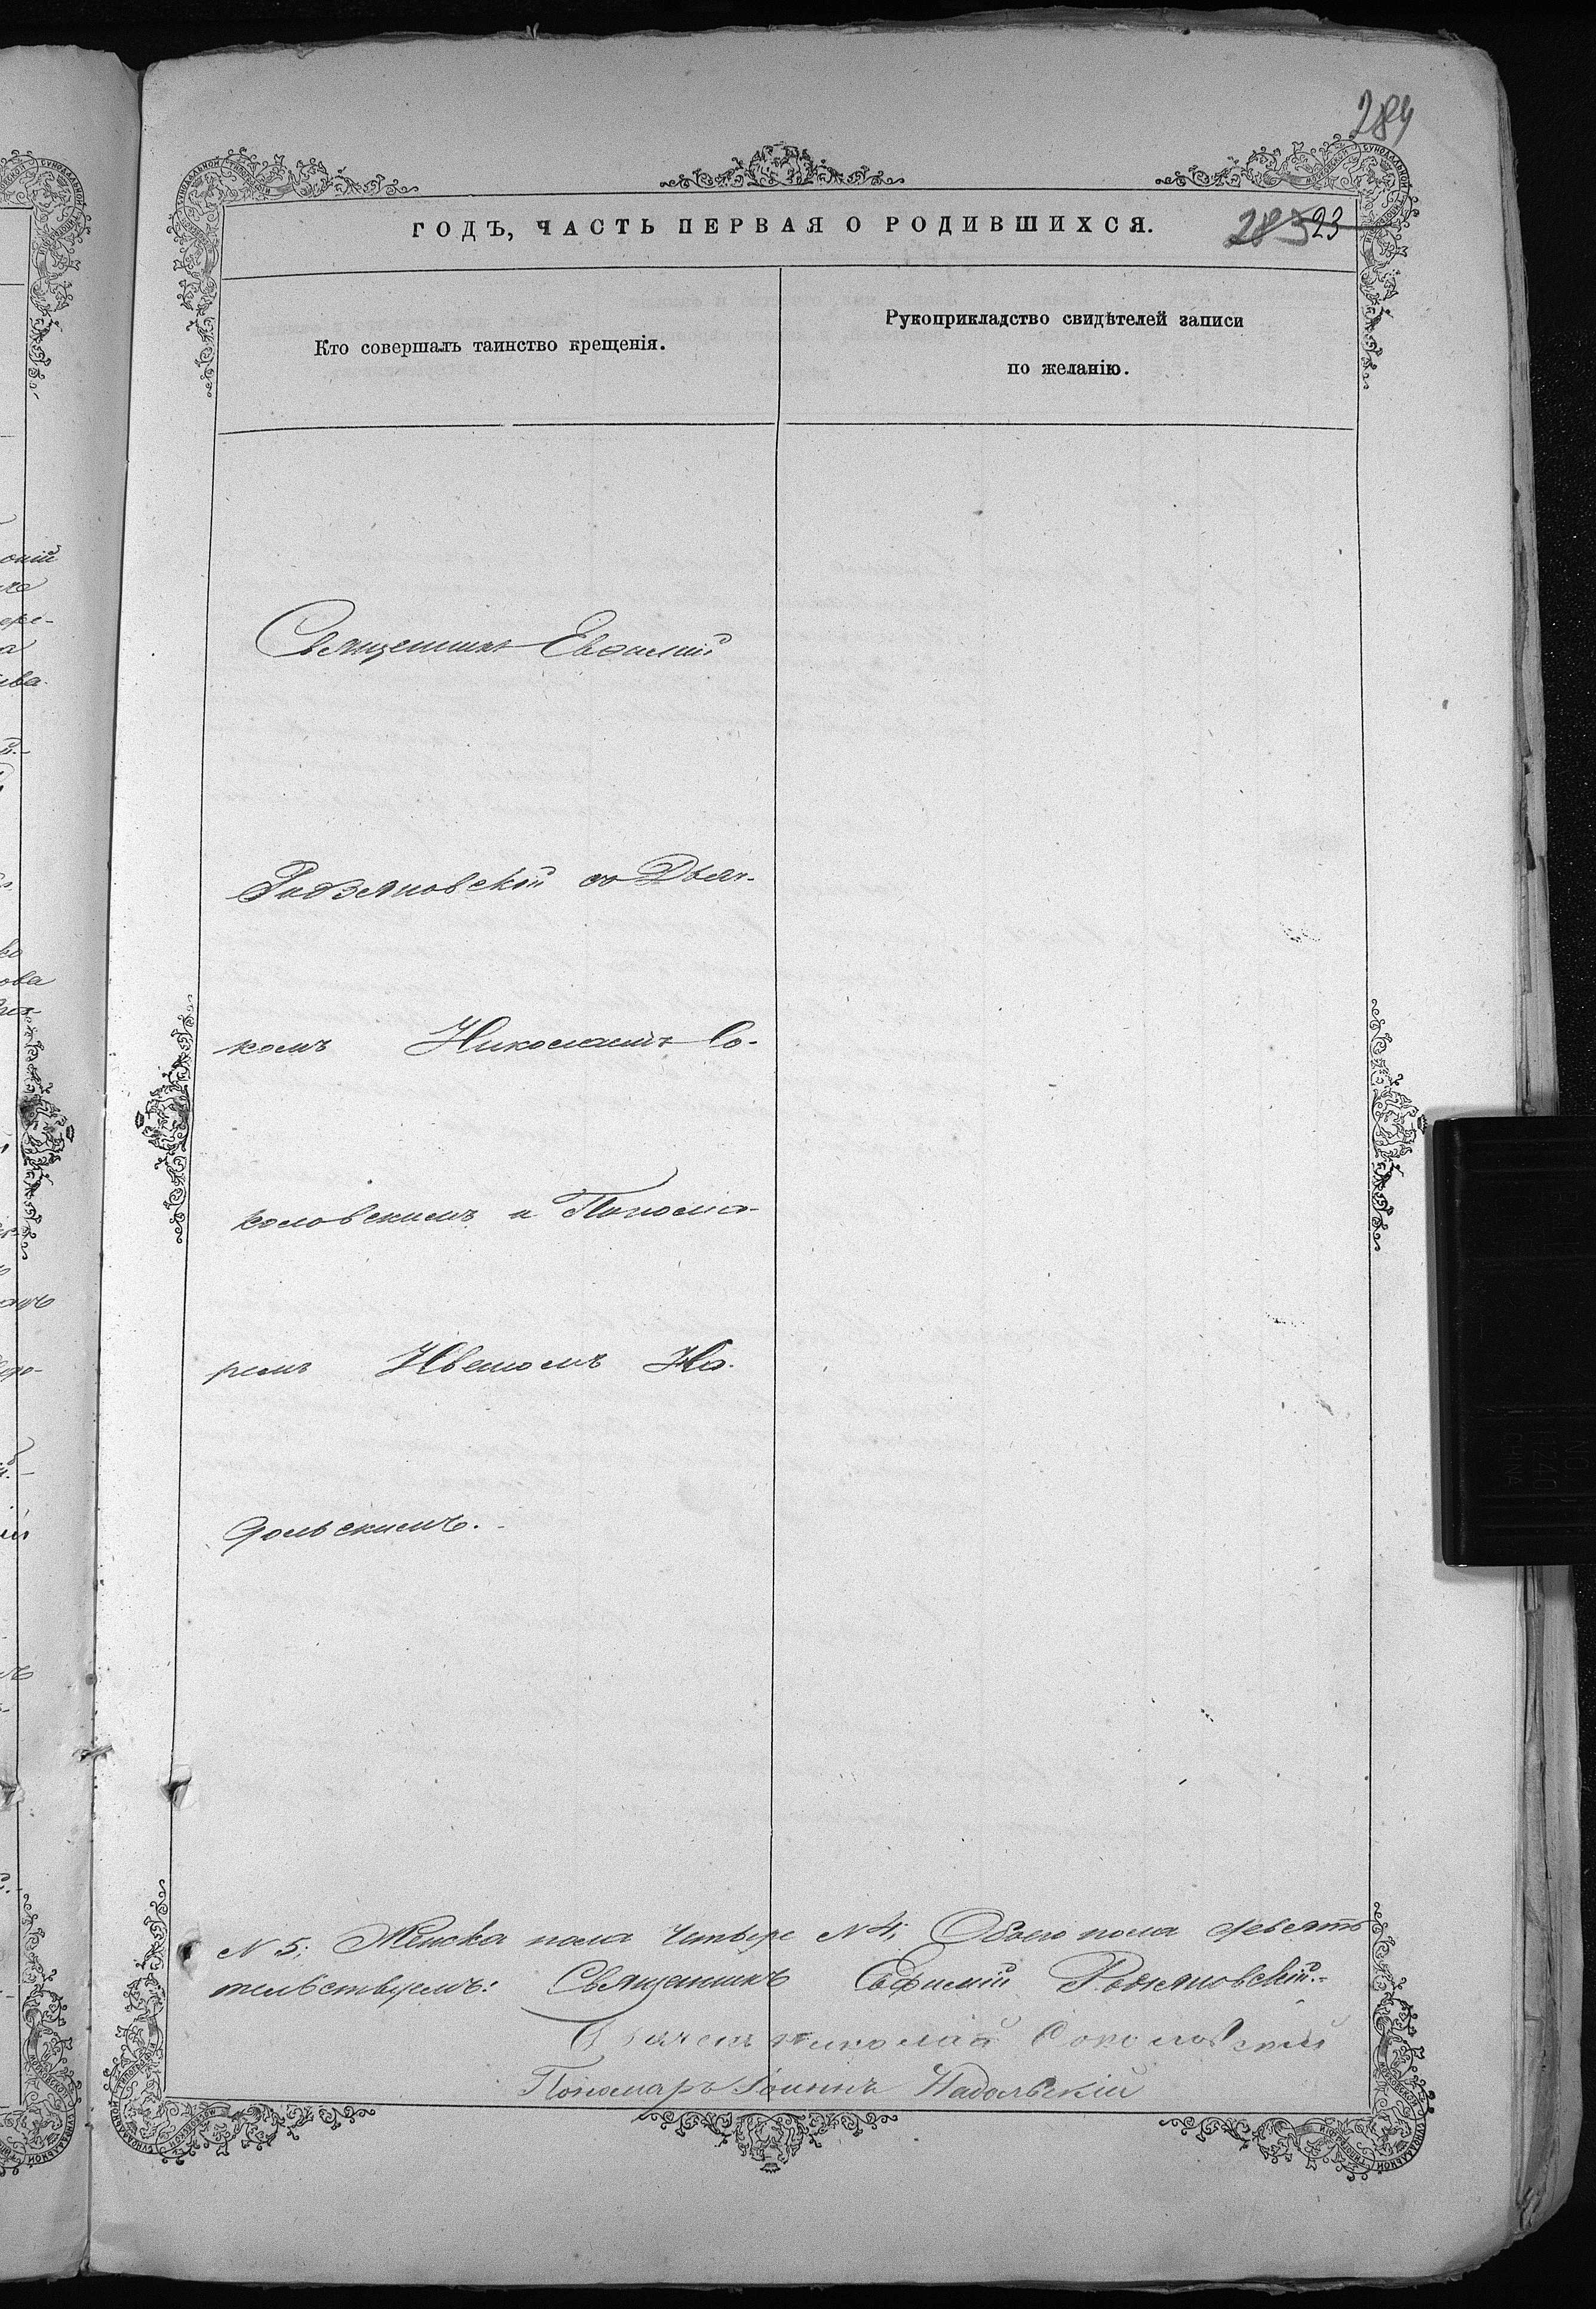 284
ГОДЪ, ЧАСТЬ ПЕРВАЯ О РОДИВШИХСЯ.
23
Кто совершалъ таинство крещенія.
Рукоприкладство свидѣтелей записи
по желанію.
Священникъ Евѳимій
Родзяновскій съ Дьяч-
комъ Николаемъ Со-
коловскимъ и Понома-
ремъ Иваномъ На-
дольскимъ.
N 5; Женска пола четыре N 4, Обоего пола девять
тельствуемъ: Священникъ Евфимій Родзяновскій.
Дьячекъ Николай Соколовский
Пономарь Іоаннъ Надольскій